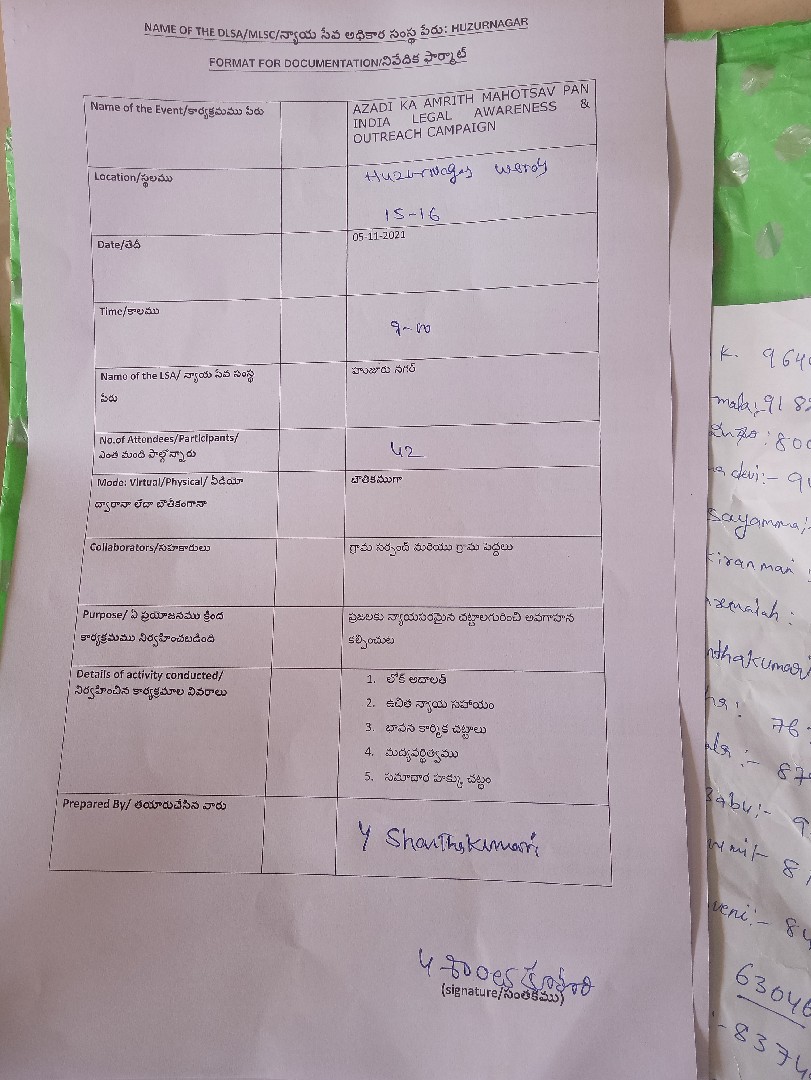 NAME OF THE DLSA/MLSC/న్యాయ సేవ అధికార సంస్థ పేరు: HUZURNAGAR
FORMAT FOR DOCUMENTATION/నివేదిక ఫార్మాట్
Name of the Event/కార్యక్రమము పేరు
AZADI KA AMRITH MAHOTSAV PAN
INDIA LEGAL AWARENESS &
OUTREACH CAMPAIGN
Location/స్థలము
Huzurnagar
15-16
Date/తేదీ
05-11-2021
Time/కాలము
9-00
Name of the LSA/ న్యాయ సేవ సంస్థ
పేరు
హుజూరు నగర్
No.of Attendees/Participants/
ఎంత మంది పాల్గోన్నారు
42
Mode: Virtual/Physical/ వీడియో
ద్వారానా లేదా భౌతికంగానా
భౌతికముగా
Collaborators/సహకారులు
గ్రామ సర్పంచ్ మరియు గ్రామ పెద్దలు
Purpose/ ఏ ప్రయోజనము క్రింద
కార్యక్రమము నిర్వహించబడింది
ప్రజలకు న్యాయపరమైన చట్టాలగురించి అవగాహన
కల్పించుట
Details of activity conducted/
నిర్వహించిన కార్యక్రమాల వివరాలు
1. లోక్ అదాలత్
2. ఉచిత న్యాయ సహాయం
3. భావన కార్మిక చట్టాలు
4. మద్యవర్థిత్వము
5. సమాచార హక్కు చట్టం
Prepared By/ తయారుచేసిన వారు
Y Shanthakumari
(signature/సంతకము)
K. 964
91 8
: 800
devi:- 9
Sayamma:-
kiranmai
76
:- 87
Babu:- 9
8
veni:- 84
6304
:-8374